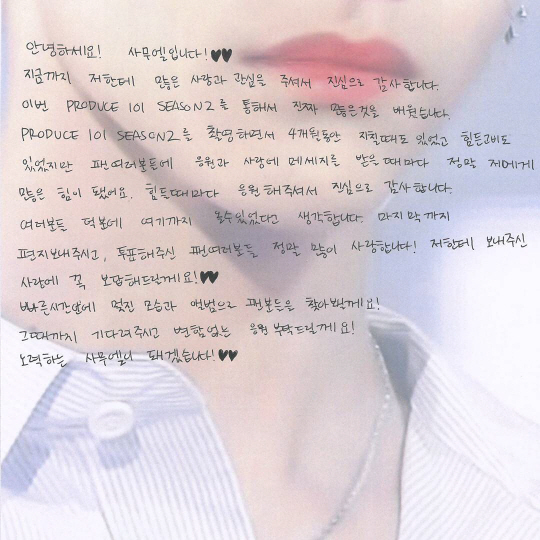 안녕하세요! 사무엘입니다!♥♥
지금까지 저한테 많은 사랑과 관심을 주셔서 진심으로 감사합니다.
이번 PRODUCE 101 SEASON2를 통해서 진짜 많은것을 배웠습니다.
PRODUCE 101 SEASON2를 촬영하면서 4개월동안 지칠때도 있었고 힘든고비도
있었지만 팬여러분들에 응원과 사랑에 메세지를 받을때마다 정말 저에게
많은 힘이 됐어요. 힘들때마다 응원해주셔서 진심으로 감사합니다.
여러분들 덕분에 여기까지 올수있었다고 생각합니다. 마지막까지
편지보내주시고, 투표해주신 팬여러분들 정말 많이 사랑합니다! 저한테 보내주신
사랑에 꼭 보답해드릴께요!♥♥
빠른시간안에 멋진 모습과 앨범으로 팬분들을 찾아뵐께요!
그때까지 기다려주시고 변함없는 응원 부탁드릴께요!
노력하는 사무엘이 돼겠습니다!♥♥